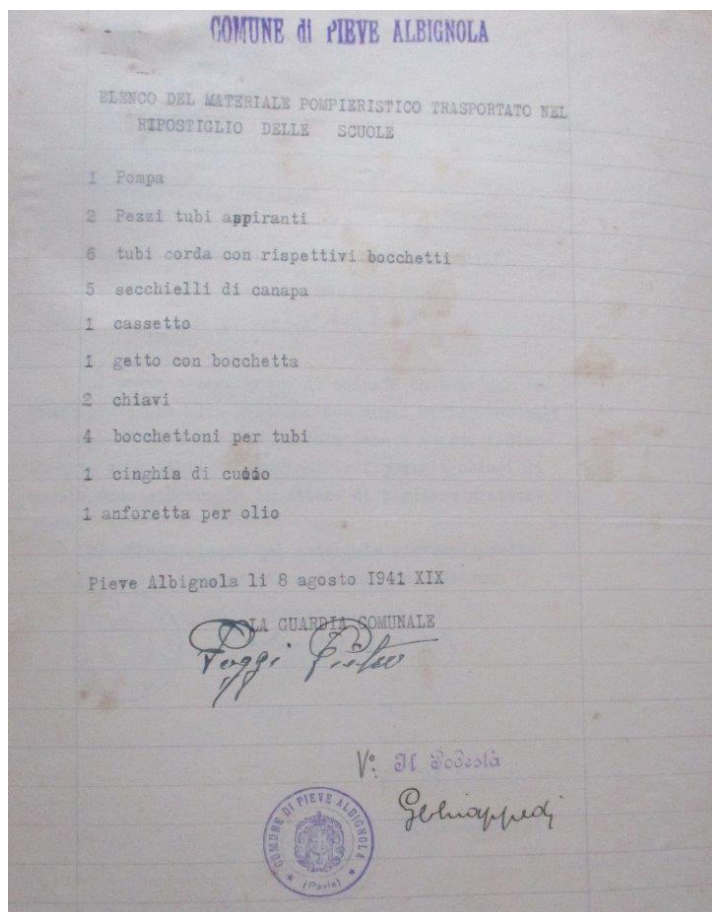 COMUNE di PIEVE ALBIGNOLA
ELENCO DEL MATERIALE POMPIERISTICO TRASPORTATO NEL
RIPOSTIGLIO DELLE SCUOLE
1 Pompa
2 Pezzi tubi aspiranti
6 tubi corda con rispettivi bocchetti
5 secchielli di canapa
1 cassetto
1 getto con bocchetta
2 chiavi
4 bocchettoni per tubi
1 cinghia di cuoio
1 anforetta per olio
Pieve Albignola li 8 agosto I941 XIX
LA GUARDIA COMUNALE
Poggi Pietro
V°: Il Podestà
COMUNE DI PIEVE ALBIGNOLA
(Pavia)